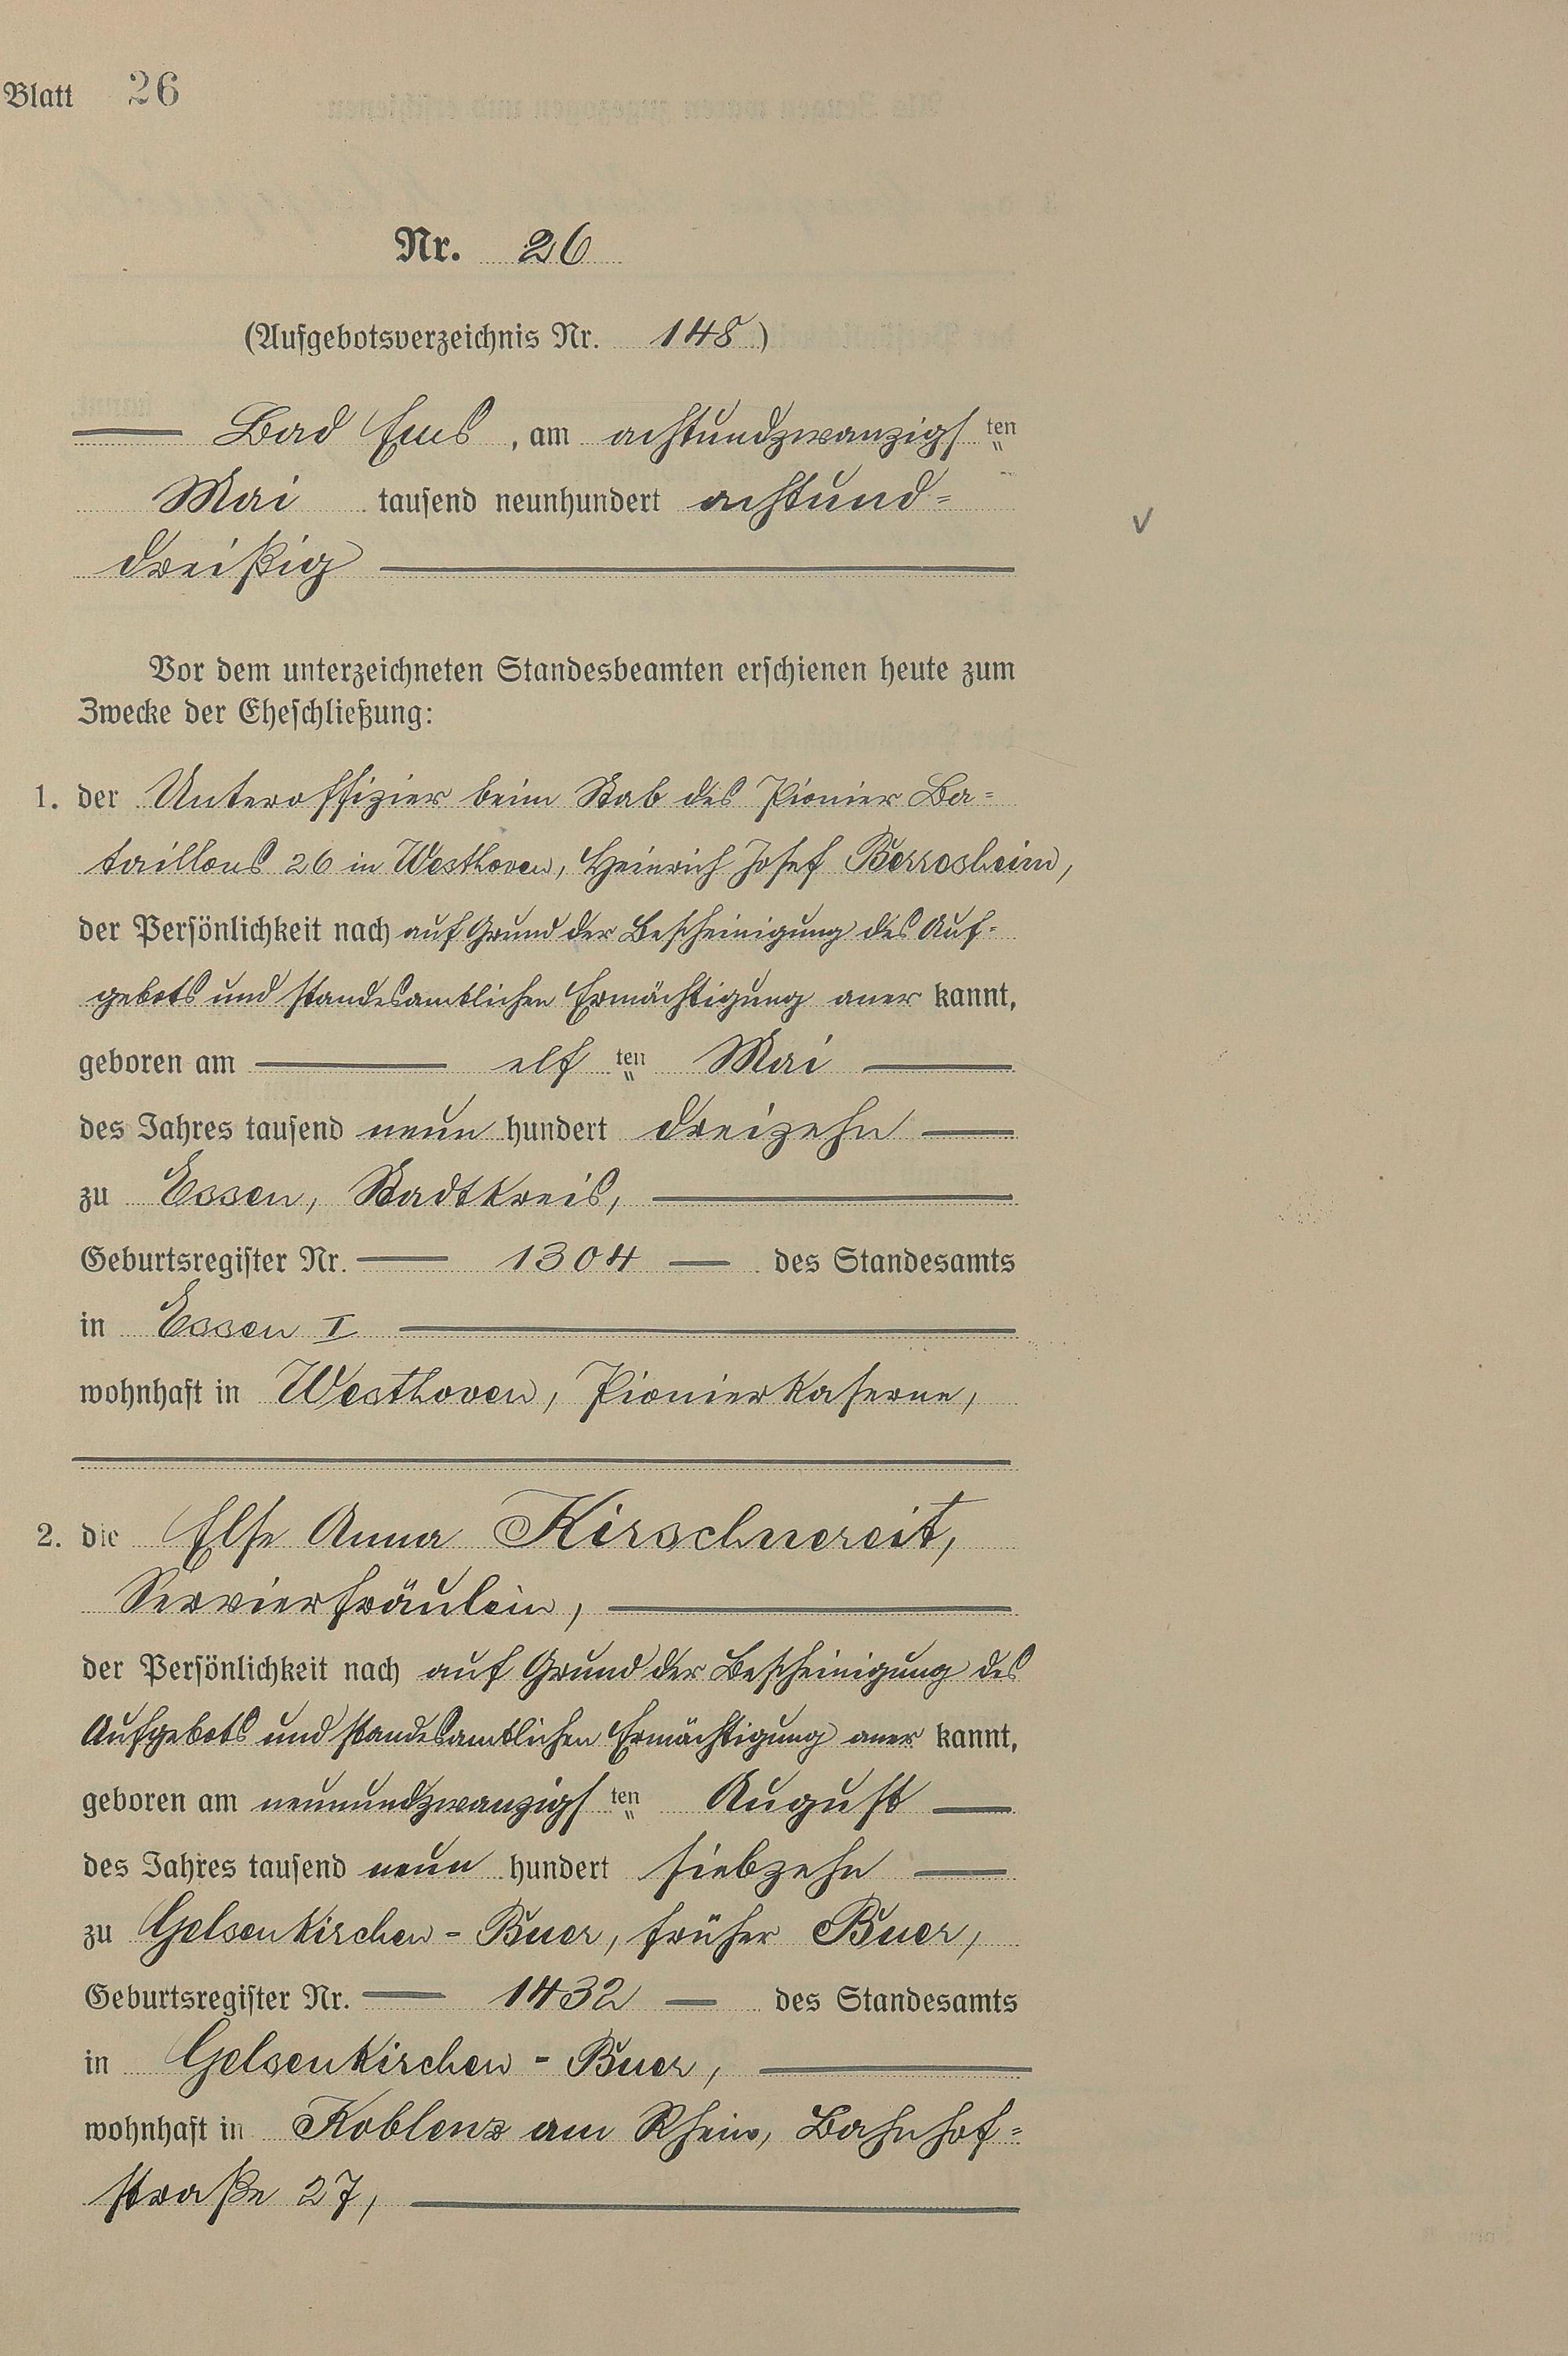 Blatt 26
Nr. 26
(Aufgebotsverzeichnis Nr. 148)
Bad Ems, am achtundzwanzigsten
Mai tausend neunhundert achtund=
dreißig
Vor dem unterzeichneten Standesbeamten erschienen heute zum
Zwecke der Eheschließung:
1. der Unteroffizier beim Stab des Pionier Ba=
taillons 26 in Westhoven, Heinrich Josef Berresheim,
der Persönlichkeit nach auf Grund der Bescheinigung des Auf=
gebots und standesamtlichen Ermächtigung aner kannt,
geboren am elf ten Mai
des Jahres tausend neun hundert dreizehn
zu Essen, Stadtkreis,
Geburtsregister Nr. 1304 des Standesamts
in Essen I
wohnhaft in Westhoven, Pionierkaserne,
2. die Else Anna Kirschnereit,
Servierfräulein,
der Persönlichkeit nach auf Grund der Bescheinigung des
Aufgebots und standesamtlichen Ermächtigung aner kannt,
geboren am neunundzwanzigsten August
des Jahres tausend neun hundert siebzehn
zu Gelsenkirchen-Buer, früher Buer,
Geburtsregister Nr. 1432 des Standesamts
in Gelsenkirchen-Buer,
wohnhaft in Koblenz am Rhein, Bahnhof=
straße 27,